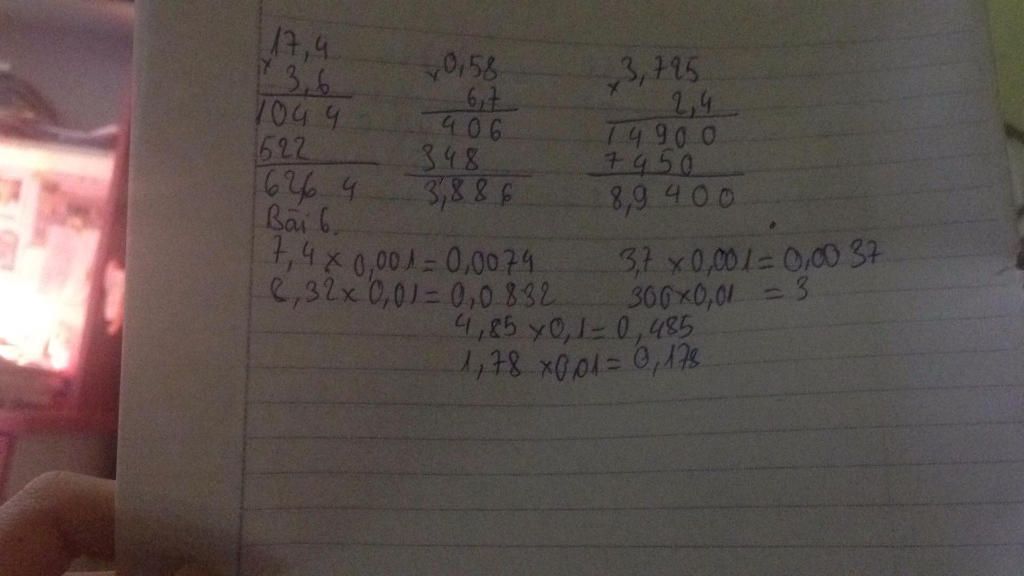 17,4 0,58 3,725
× 3,6 × 6,7 × 2,4
1044 406 14900
522 348 7450
62,64 3,886 8,9400
Bài 6.
7,4 × 0,001 = 0,0074 3,7 × 0,001 = 0,0037
8,32 × 0,01 = 0,0832 300 × 0,01 = 3
4,85 × 0,1 = 0,485
1,78 × 0,01 = 0,178